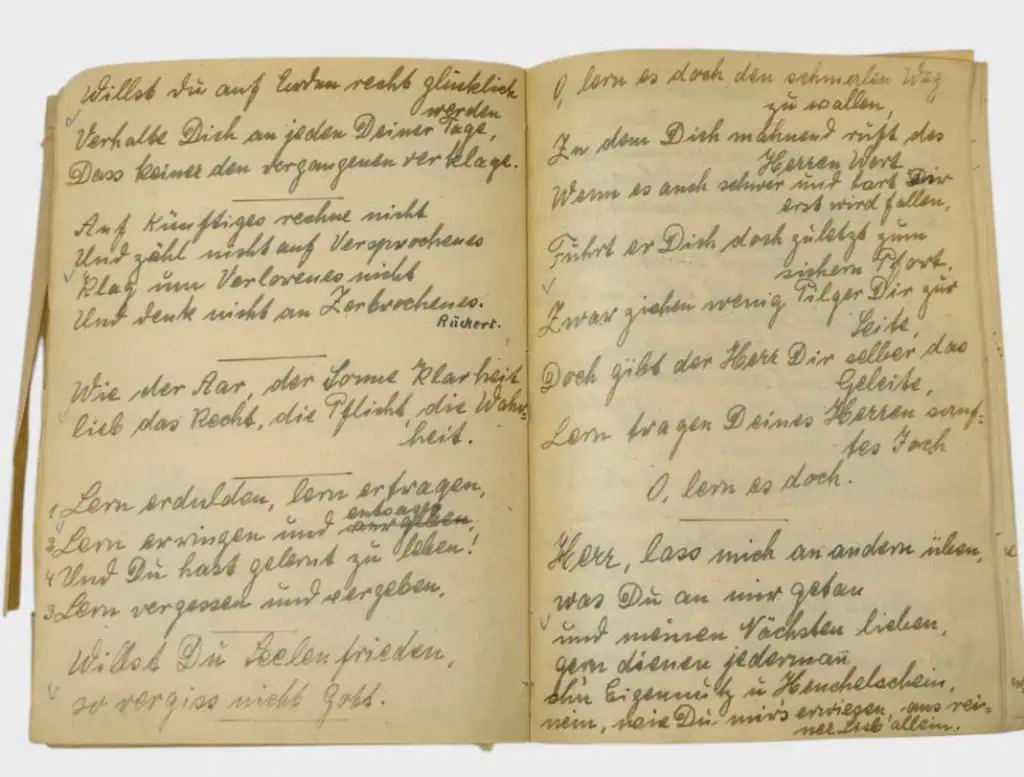 Willst du auf Erden recht glücklich
werden
Verhalte Dich an jeden Deiner Tage,
Dass keiner den vergangenen verklage.
Auf Künftiges rechne nicht
Und zähl nicht auf Versprochenes
Klag um Verlorenes nicht
Und denk nicht an Zerbrochenes.
Rückert.
Wie der Aar, der Sonne Klarheit
lieb das Recht, die Pflicht, die Wahr-
heit.
1 Lern erdulden, lern ertragen,
entsagen
2 Lern erringen und vergeben,
4 Und Du hast gelernt zu leben!
3 Lern vergessen und vergeben,
Willst Du Seelenfrieden,
so vergiss nicht Gott.
O, lern es doch den schmalen Weg
zu wallen,
Zu dem Dich mahnend ruft des
Herren Wort
Wenn es auch schwer und hart Dir
erst wird fallen,
Führt er Dich doch zuletzt zum
sichern Pfort.
Zwar ziehen wenig Pilger Dir zur
Seite,
Doch gibt der Herr Dir selber das
Geleite,
Lern tragen Deines Herren sanf-
tes Joch
O, lern es doch.
Herr, lass mich an andern üben,
was Du an mir getan
und meinen Nächsten lieben,
gern dienen jedermañ
ohn Eigennutz u Heuchelschein,
nein, wie Du mir's erwiesen, aus rei-
ner Lieb allein.